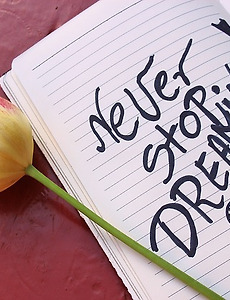 Never
STOP
DREAM